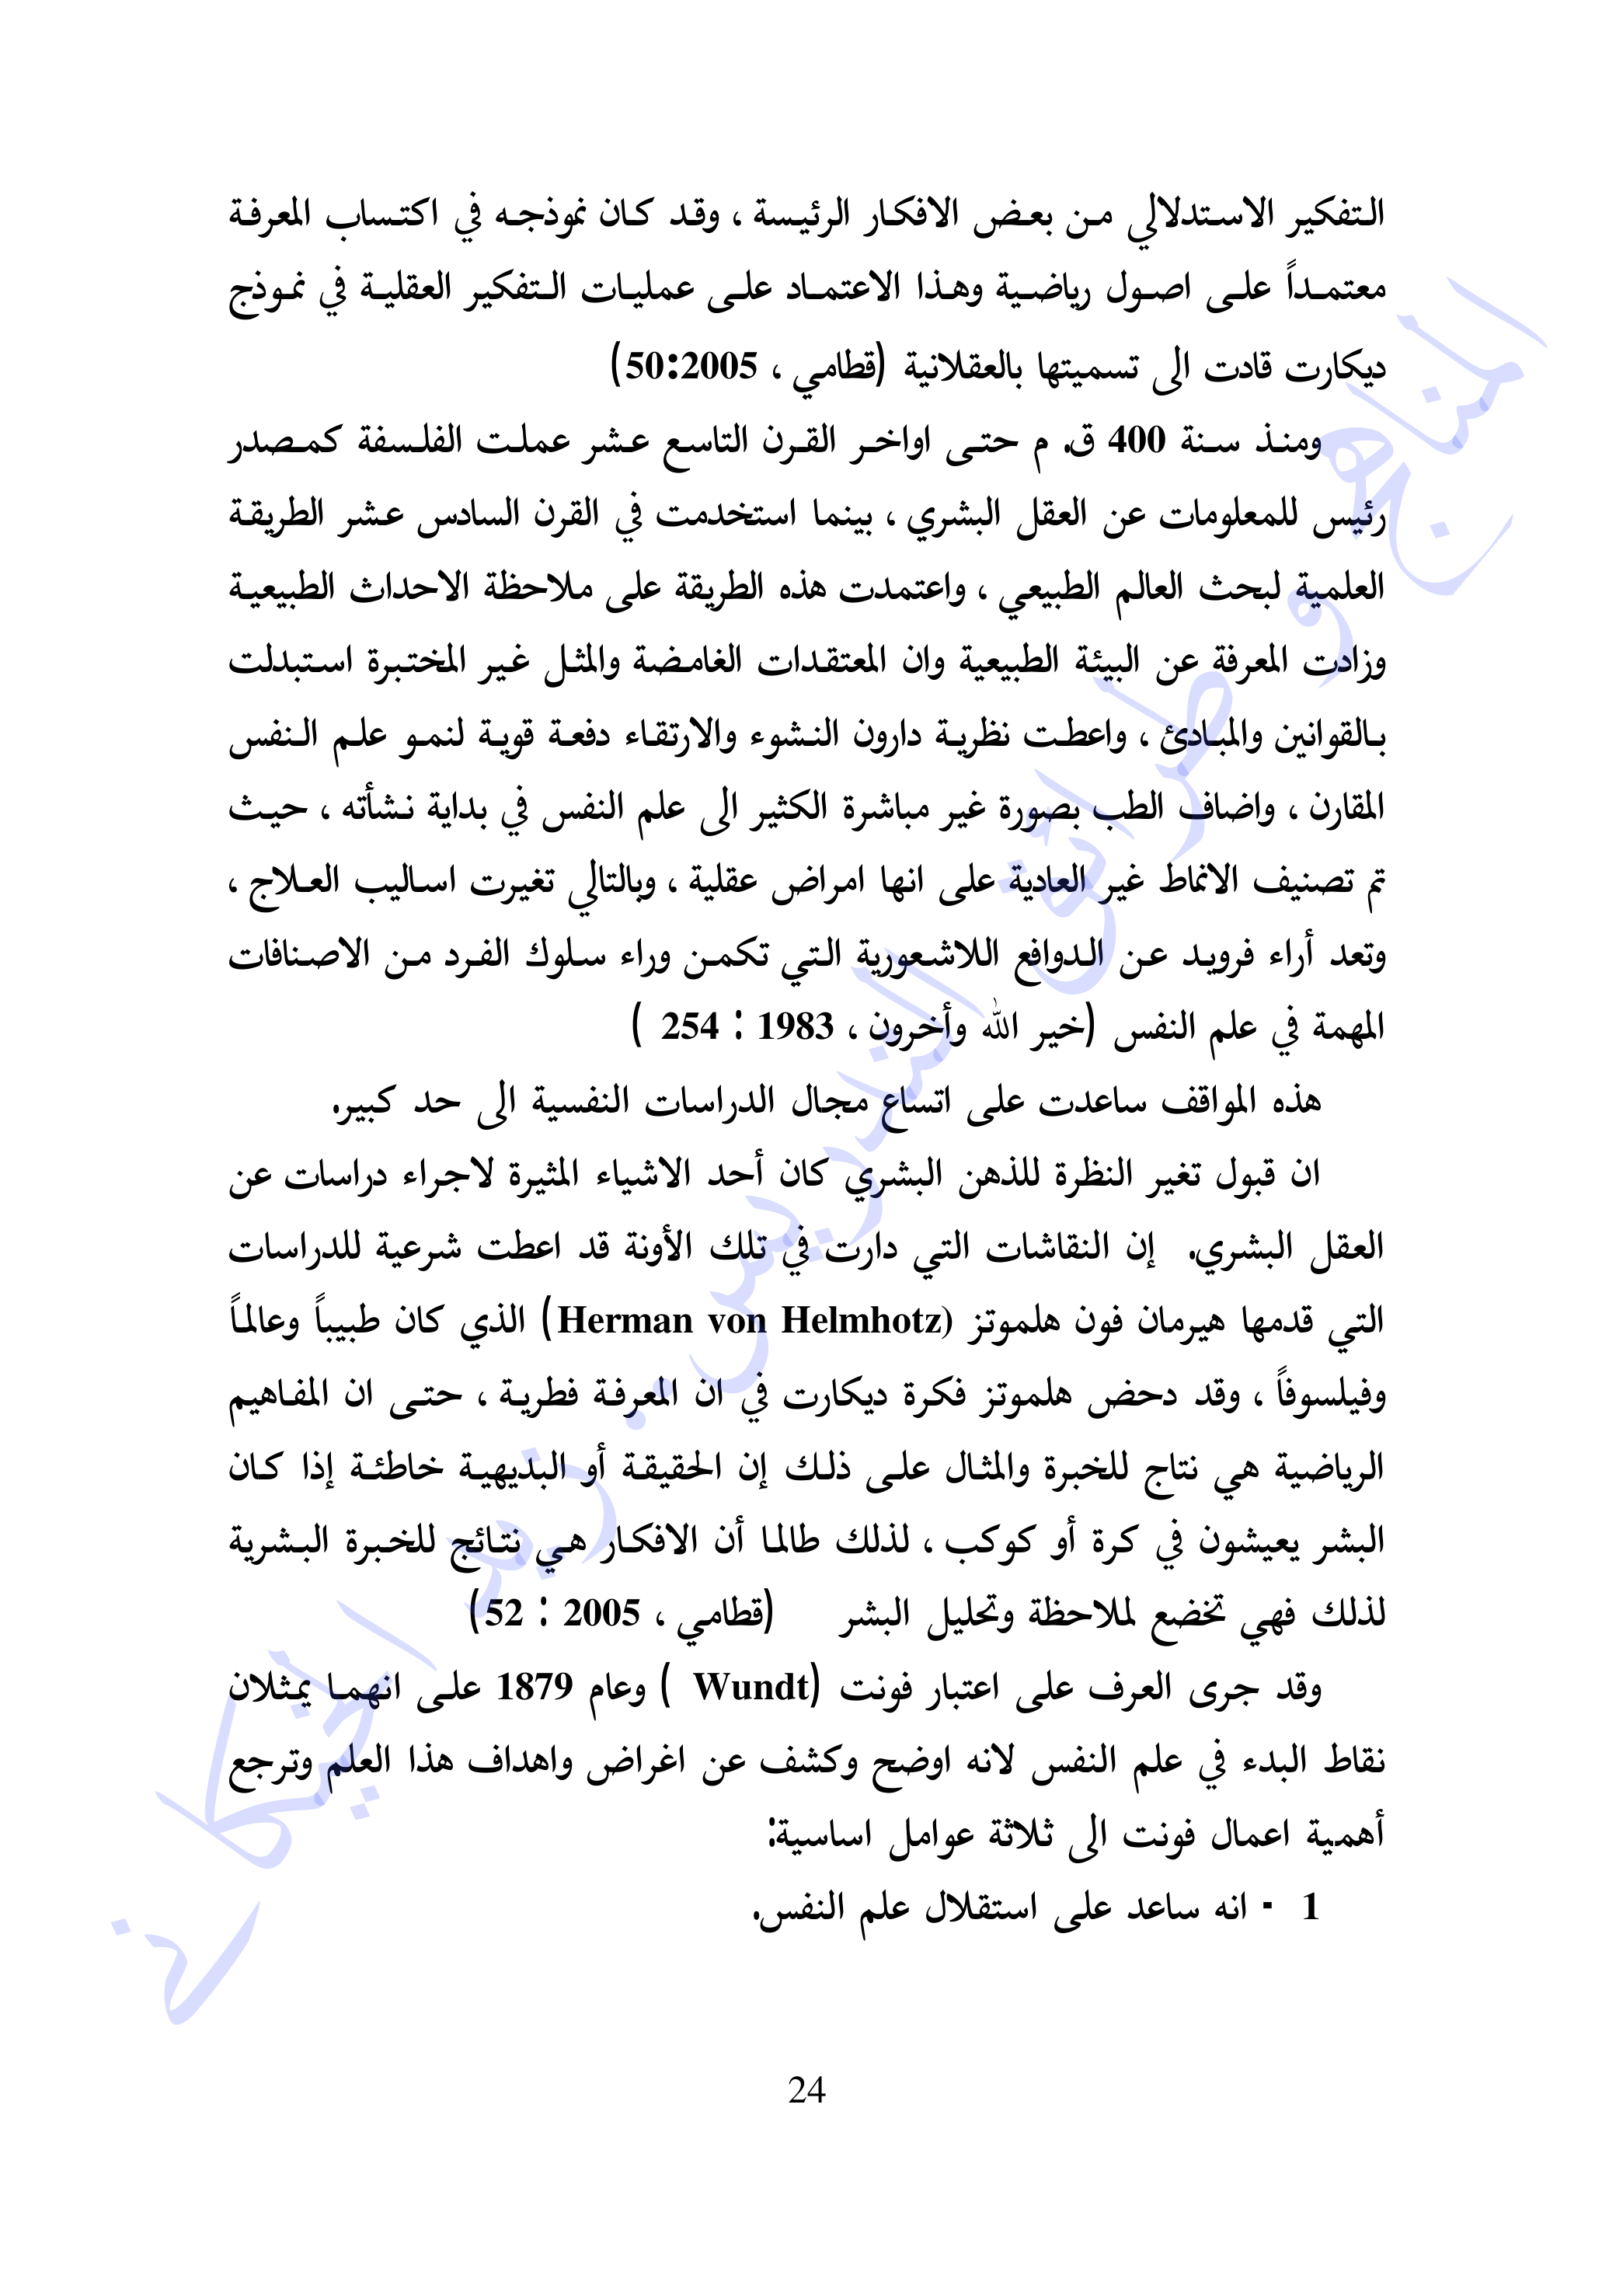 التفكير الاستدلالي من بعض الافكار الرئيسة ، وقد كان نموذجه في اكتساب المعرفة
معتمداً على اصول رياضية وهذا الاعتماد على عمليات التفكير العقلية في نموذج
ديكارت قادت الى تسميتها بالعقلانية (قطامي ، 50:2005)
ومنذ سنة 400 ق. م حتى اواخر القرن التاسع عشر عملت الفلسفة كمصدر
رئيس للمعلومات عن العقل البشري ، بينما استخدمت في القرن السادس عشر الطريقة
العلمية لبحث العالم الطبيعي ، واعتمدت هذه الطريقة على ملاحظة الاحداث الطبيعية
وزادت المعرفة عن البيئة الطبيعية وان المعتقدات الغامضة والمثل غير المختبرة استبدلت
بالقوانين والمبادئ ، واعطت نظرية دارون النشوء والارتقاء دفعة قوية لنمو علم النفس
المقارن ، واضاف الطب بصورة غير مباشرة الكثير الى علم النفس في بداية نشأته ، حيث
تم تصنيف الانماط غير العادية على انها امراض عقلية ، وبالتالي تغيرت اساليب العلاج ،
وتعد أراء فرويد عن الدوافع اللاشعورية التي تكمن وراء سلوك الفرد من الاصنافات
المهمة في علم النفس (خير الله وأخرون ، 1983 : 254 )
هذه المواقف ساعدت على اتساع مجال الدراسات النفسية الى حد كبير.
ان قبول تغير النظرة للذهن البشري كان أحد الاشياء المثيرة لاجراء دراسات عن
العقل البشري. إن النقاشات التي دارت في تلك الأونة قد اعطت شرعية للدراسات
التي قدمها هيرمان فون هلموتز (Herman von Helmhotz) الذي كان طبيباً وعالماً
وفيلسوفاً ، وقد دحض هلموتز فكرة ديكارت في ان المعرفة فطرية ، حتى ان المفاهيم
الرياضية هي نتاج للخبرة والمثال على ذلك إن الحقيقة أو البديهية خاطئة إذا كان
البشر يعيشون في كرة أو كوكب ، لذلك طالما أن الافكار هي نتائج للخبرة البشرية
لذلك فهي تخضع لملاحظة وتحليل البشر (قطامي ، 2005 : 52)
وقد جرى العرف على اعتبار فونت (Wundt ) وعام 1879 على انهما يمثلان
نقاط البدء في علم النفس لانه اوضح وكشف عن اغراض واهداف هذا العلم وترجع
أهمية اعمال فونت الى ثلاثة عوامل اساسية:
1 - انه ساعد على استقلال علم النفس.
24